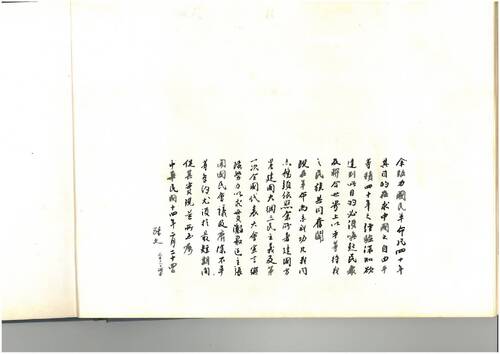 余致力國民革命凡四十年
其目的在求中國之自由平
等積四十年之經驗深知欲
達到此目的必須喚起民衆
及聯合世界上以平等待我
之民族共同奮鬥
現在革命尚未成功凡我同
志務須依照余所著建國方
略建國大綱三民主義及第
一次全國代表大會宣言繼
續努力以求貫澈最近主張
開國民會議及廢除不平
等條約尤須於最短期間
促其實現是所至囑
中華民國十四年二月二十四日
孫文